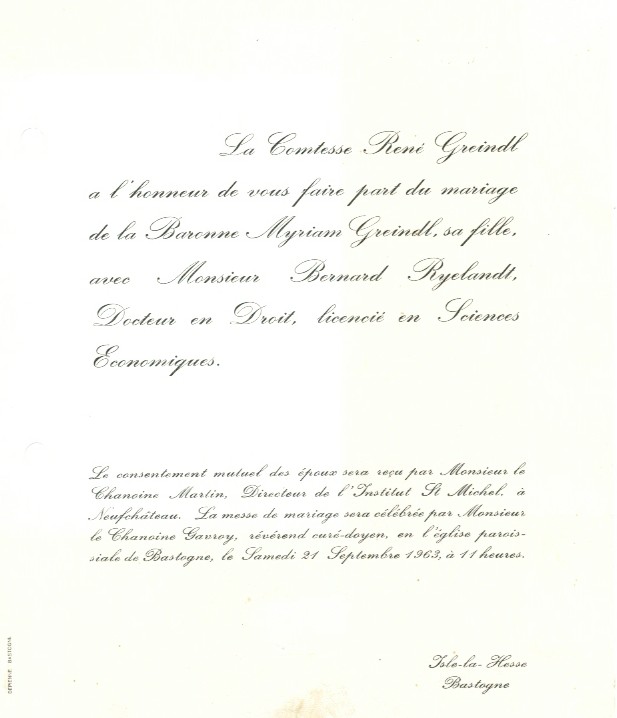 La Comtesse René Greindl
a l'honneur de vous faire part du mariage
de la Baronne Myriam Greindl, sa fille,
avec Monsieur Bernard Ryelandt,
Docteur en Droit, licencié en Sciences
Economiques.
Le consentement mutuel des époux sera reçu par Monsieur le
Chanoine Martin, Directeur de l'Institut St Michel, à
Neufchâteau. La messe de mariage sera célébrée par Monsieur
le Chanoine Gavroy, révérend curé-doyen, en l'église parois-
siale de Bastogne, le Samedi 21 Septembre 1963, à 11 heures.
Isle-la-Hesse
Bastogne